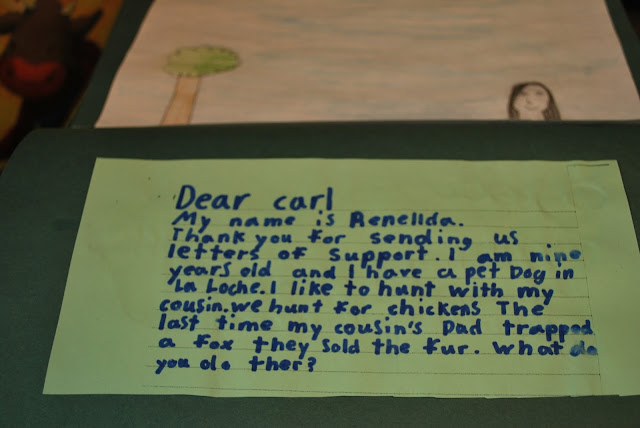 Dear carl
My name is Renellda.
Thank you for sending us
letters of support. I am nine
years old and I have a pet Dog in
La Loche. I like to hunt with my
cousin. we hunt for chickens The
last time my cousin's Dad trapped
a fox they sold the fur. what do
you do ther?